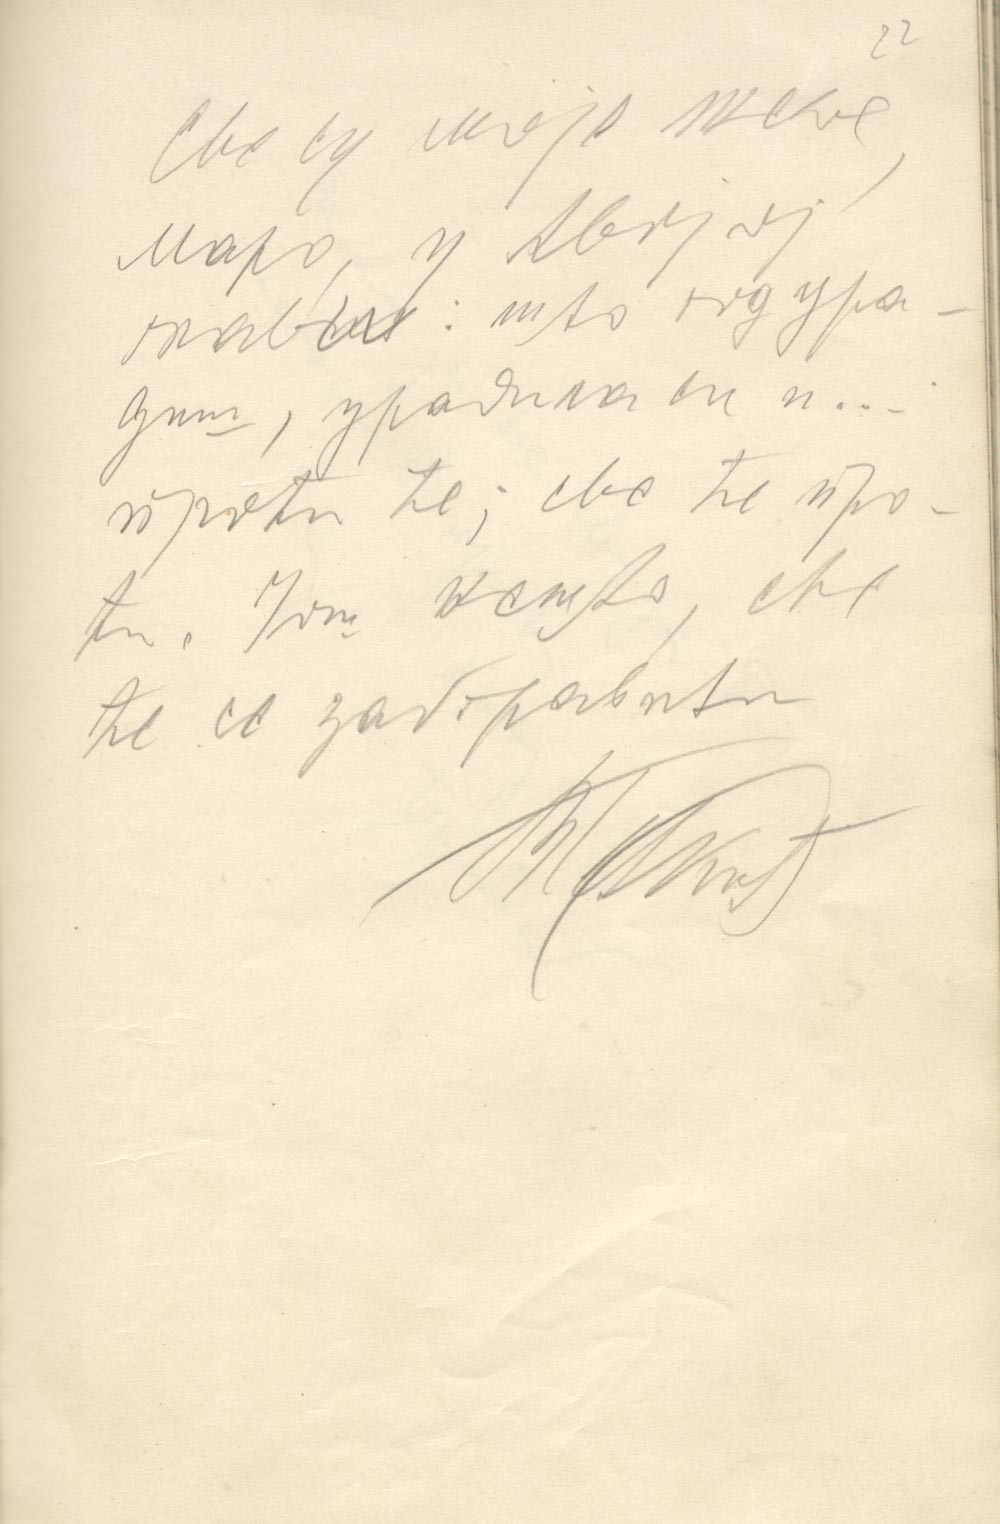 22
Све су моје жене,
Маро, у твојој
глави: што год ура-
диш, урадила си и...
проћи ће; све ће про-
ћи. Још нешто, све
ће се заборавити